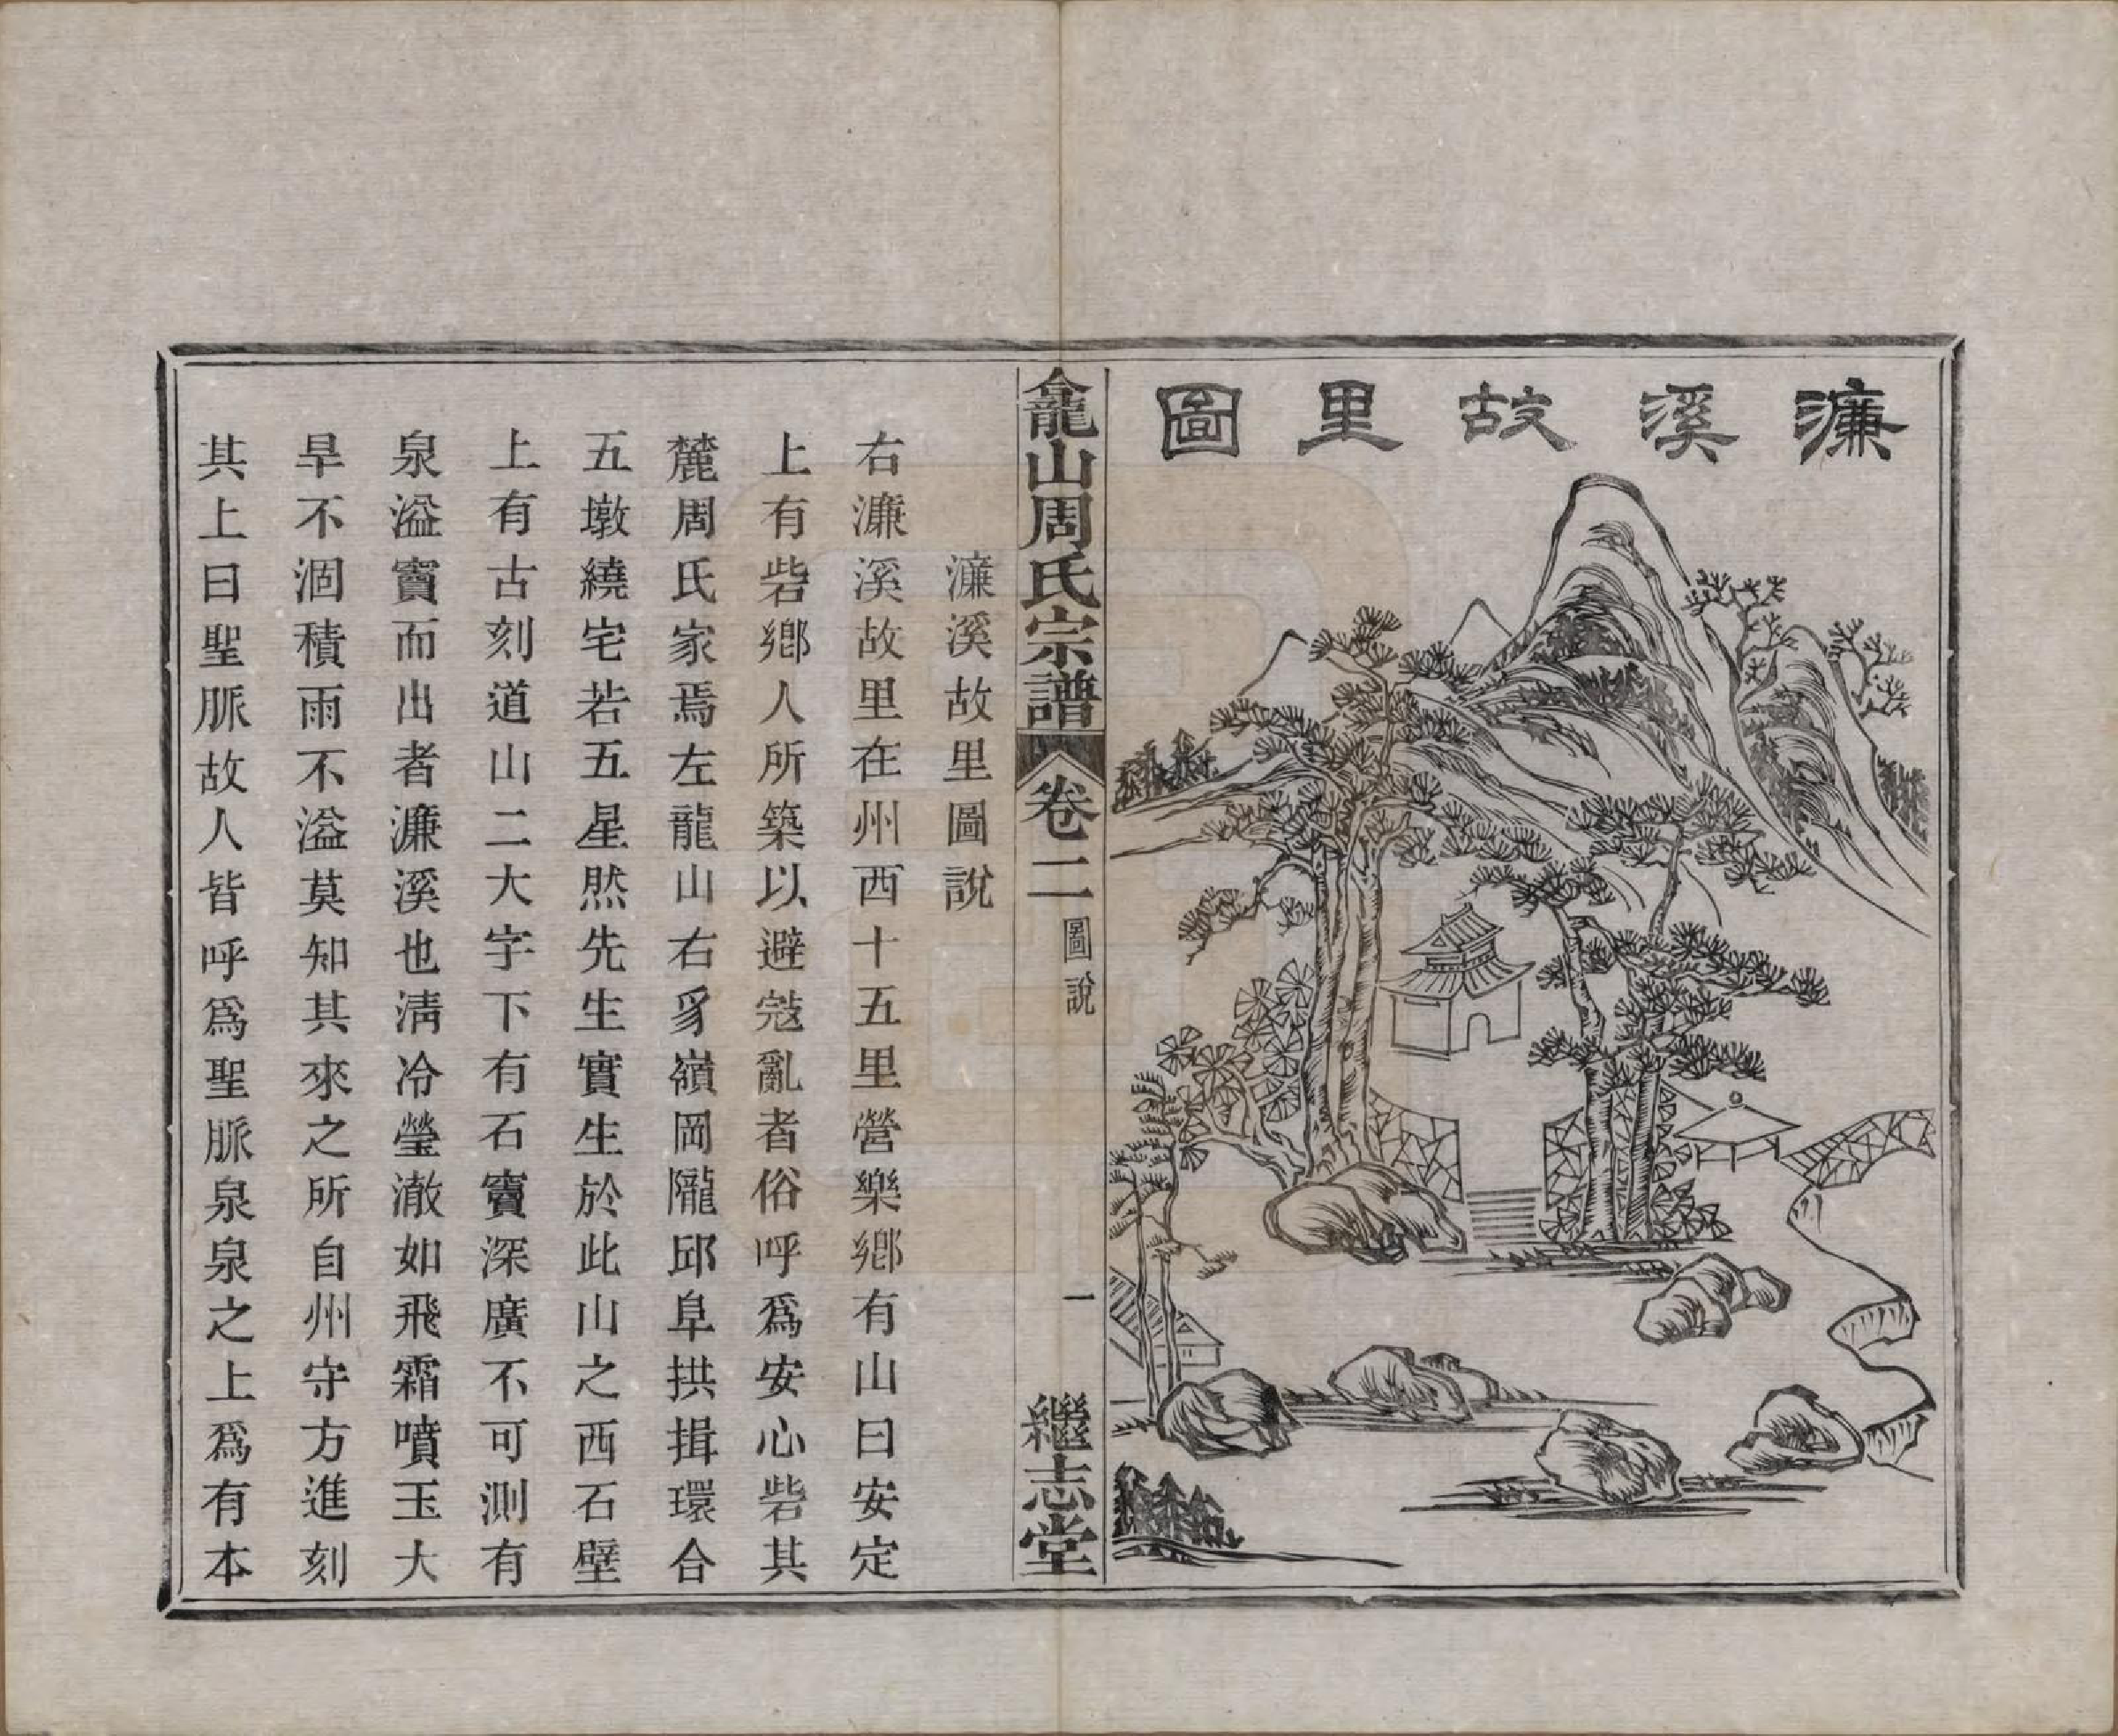 濂溪故里圖
龕山周氏宗譜 卷二 圖說 一 繼志堂
濂溪故里圖說
右濂溪故里在州西十五里營樂鄉有山曰安定
上有砦鄉人所築以避寇亂者俗呼爲安心砦其
麓周氏家焉左龍山右豸嶺岡隴邱阜拱揖環合
五墩繞宅若五星然先生實生於此山之西石壁
上有古刻道山二大字下有石竇深廣不可測有
泉溢竇而出者濂溪也淸冷瑩澈如飛霜噴玉大
旱不涸積雨不溢莫知其來之所自州守方進刻
其上曰聖脈故人皆呼爲聖脈泉泉之上爲有本